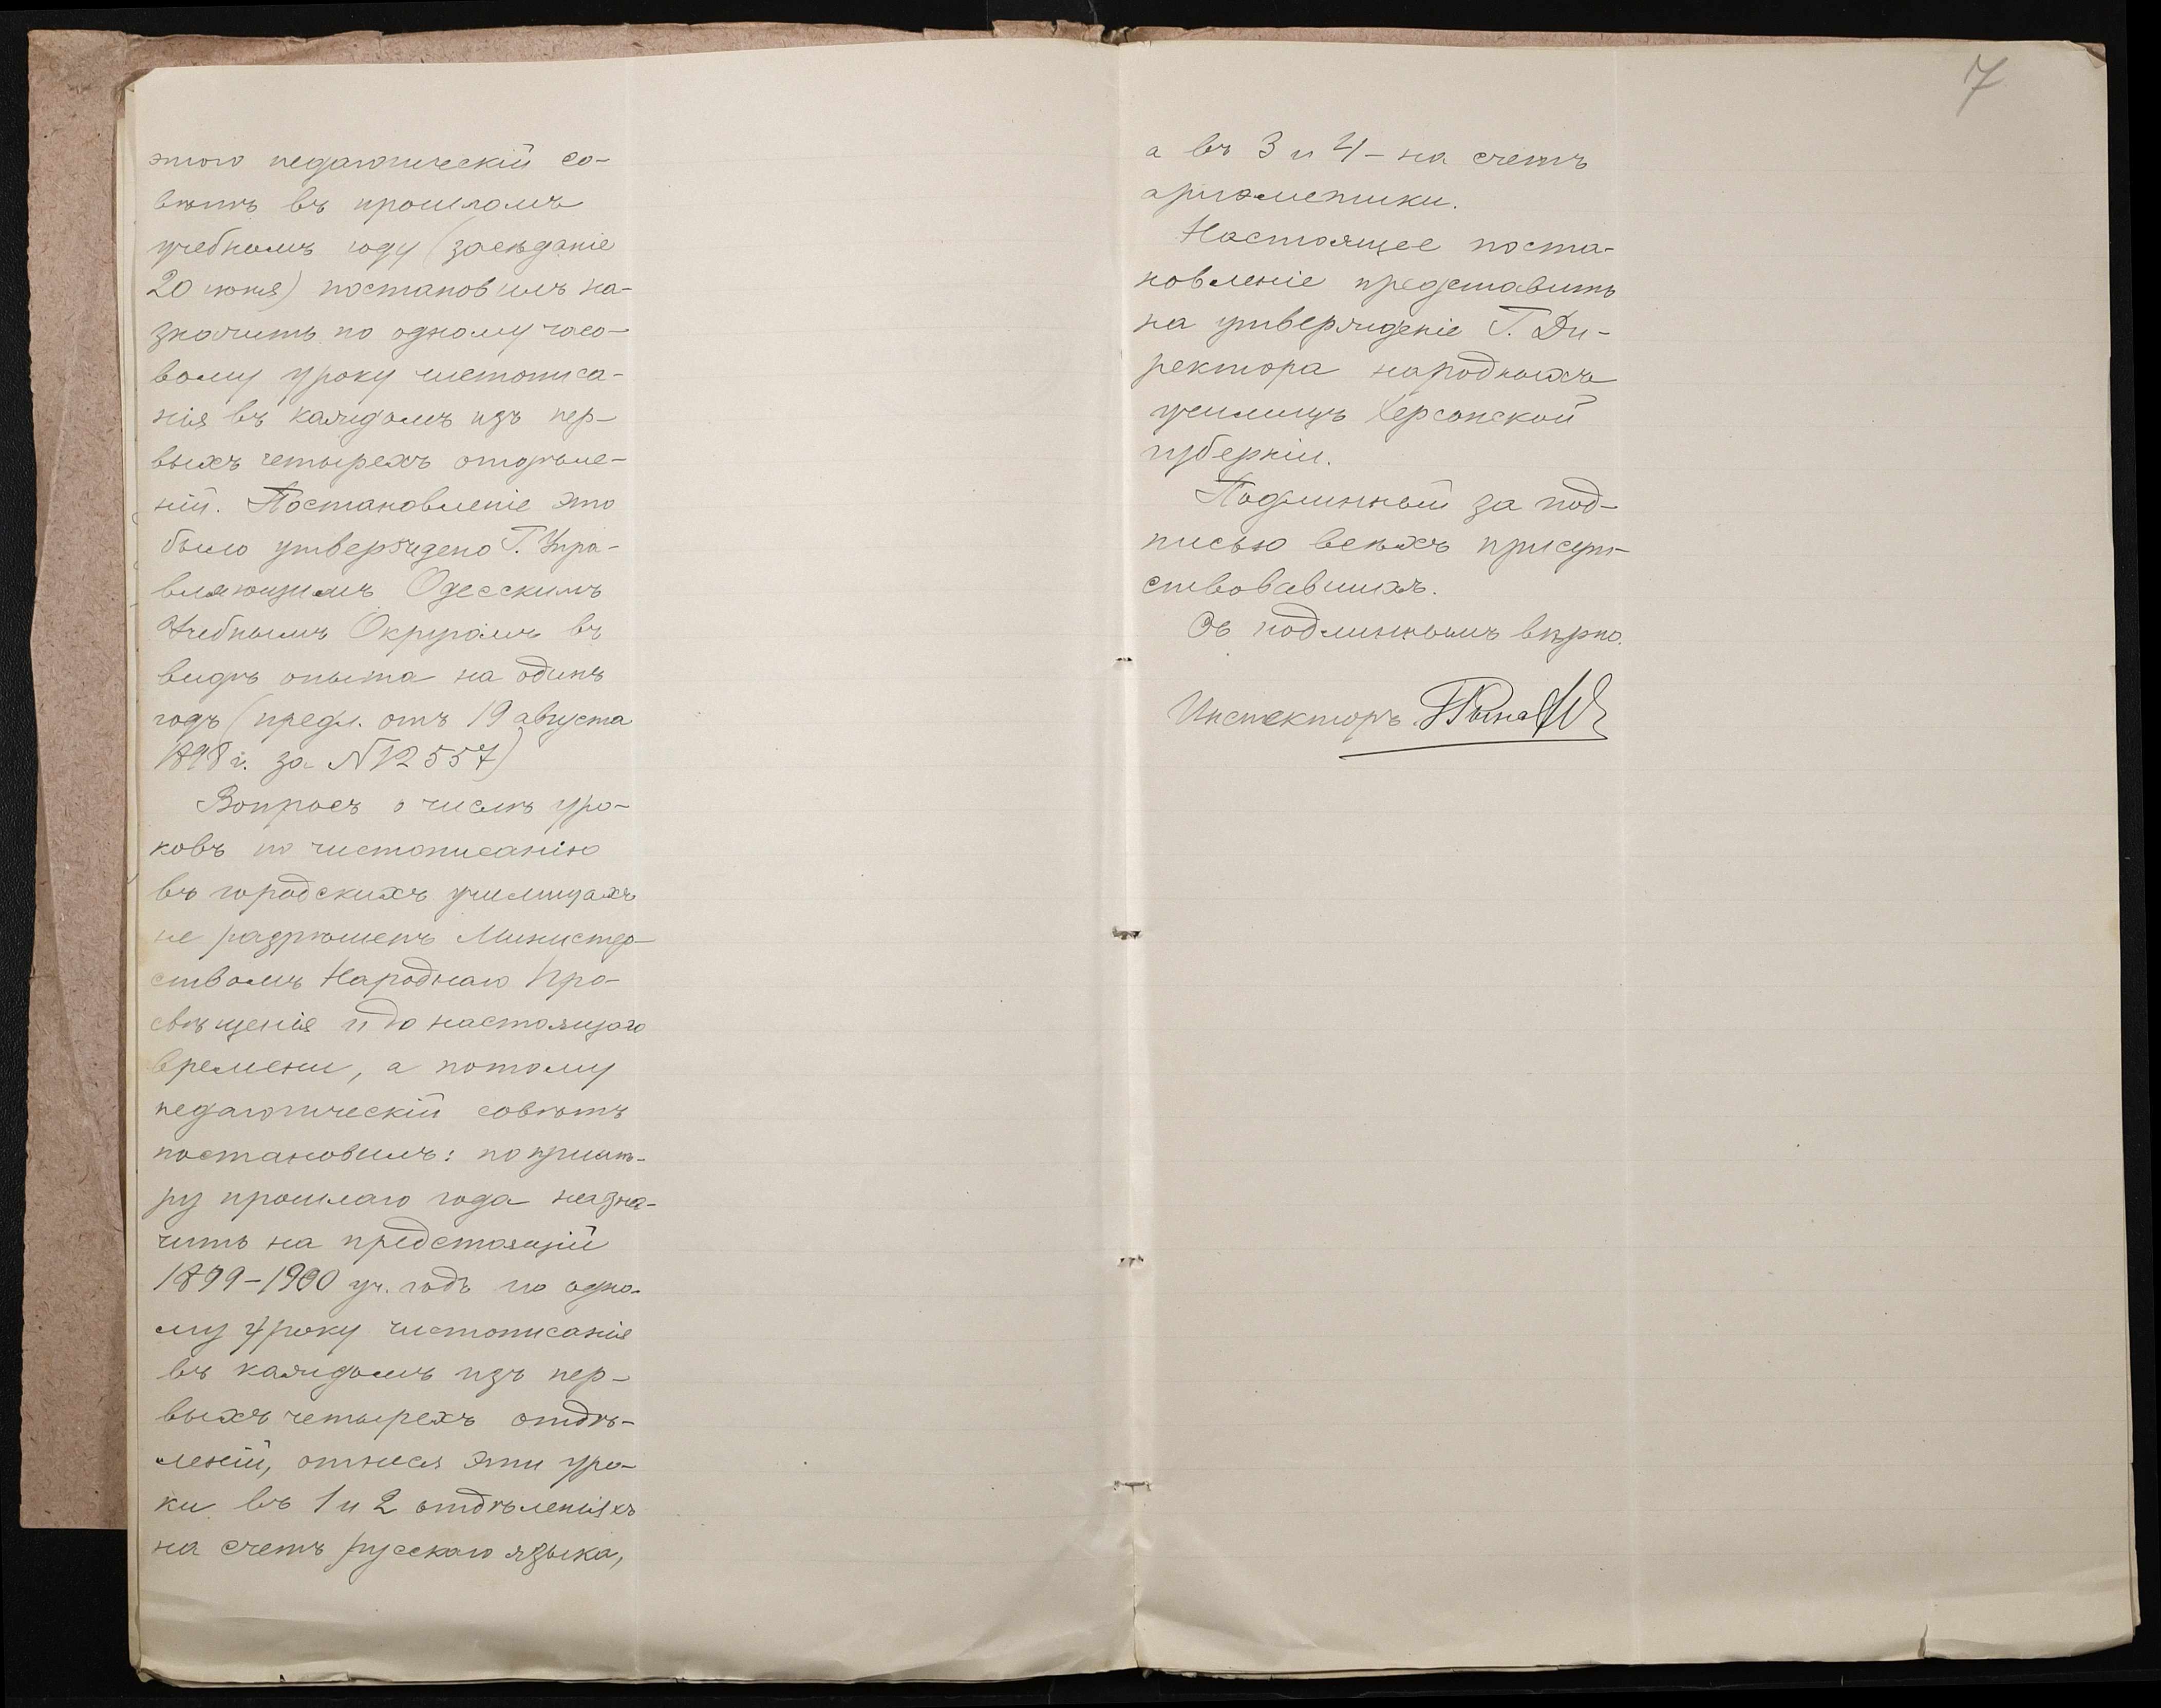 этого педагогическій со-
вѣтъ въ прошломъ
учебномъ году (засѣданіе
20 іюня) постановилъ на-
значить по одному часо-
вому уроку чистописа-
нія въ каждомъ изъ пер-
выхъ четырехъ отдѣле-
ній. Постановленіе это
было утверждено Г. Упра-
вляющимъ Одесскимъ
Учебнымъ Округомъ въ
видѣ опыта на одинъ
годъ (предл. отъ 19 августа
1898 г. за №12557)
Вопросъ о числѣ уро-
ковъ по чистописанію
въ городскихъ училищахъ
не разрѣшенъ Министер-
ствомъ Народнаго Про-
свѣщенія и до настоящаго
времени, а потому
педагогическій совѣтъ
постановилъ: по примѣ-
ру прошлаго года назна-
чить на предстоящій
1899-1900 уч. годъ по одно-
му уроку чистописанія
въ каждомъ изъ пер-
выхъ четырехъ отдѣ-
леній, отнеся эти уро-
ки въ 1 и 2 отдѣленіяхъ
на счетъ русскаго языка,
7
а въ 3 и 4 - на счетъ
ариѳметики.
Настоящее поста-
новленіе представить
на утвержденіе Г. Ди-
ректора народныхъ
училищъ Херсонской
губерніи.
Подлинный за под-
писью всѣхъ присут-
ствовавшихъ.
Съ подлиннымъ вѣрно.
Инспекторъ